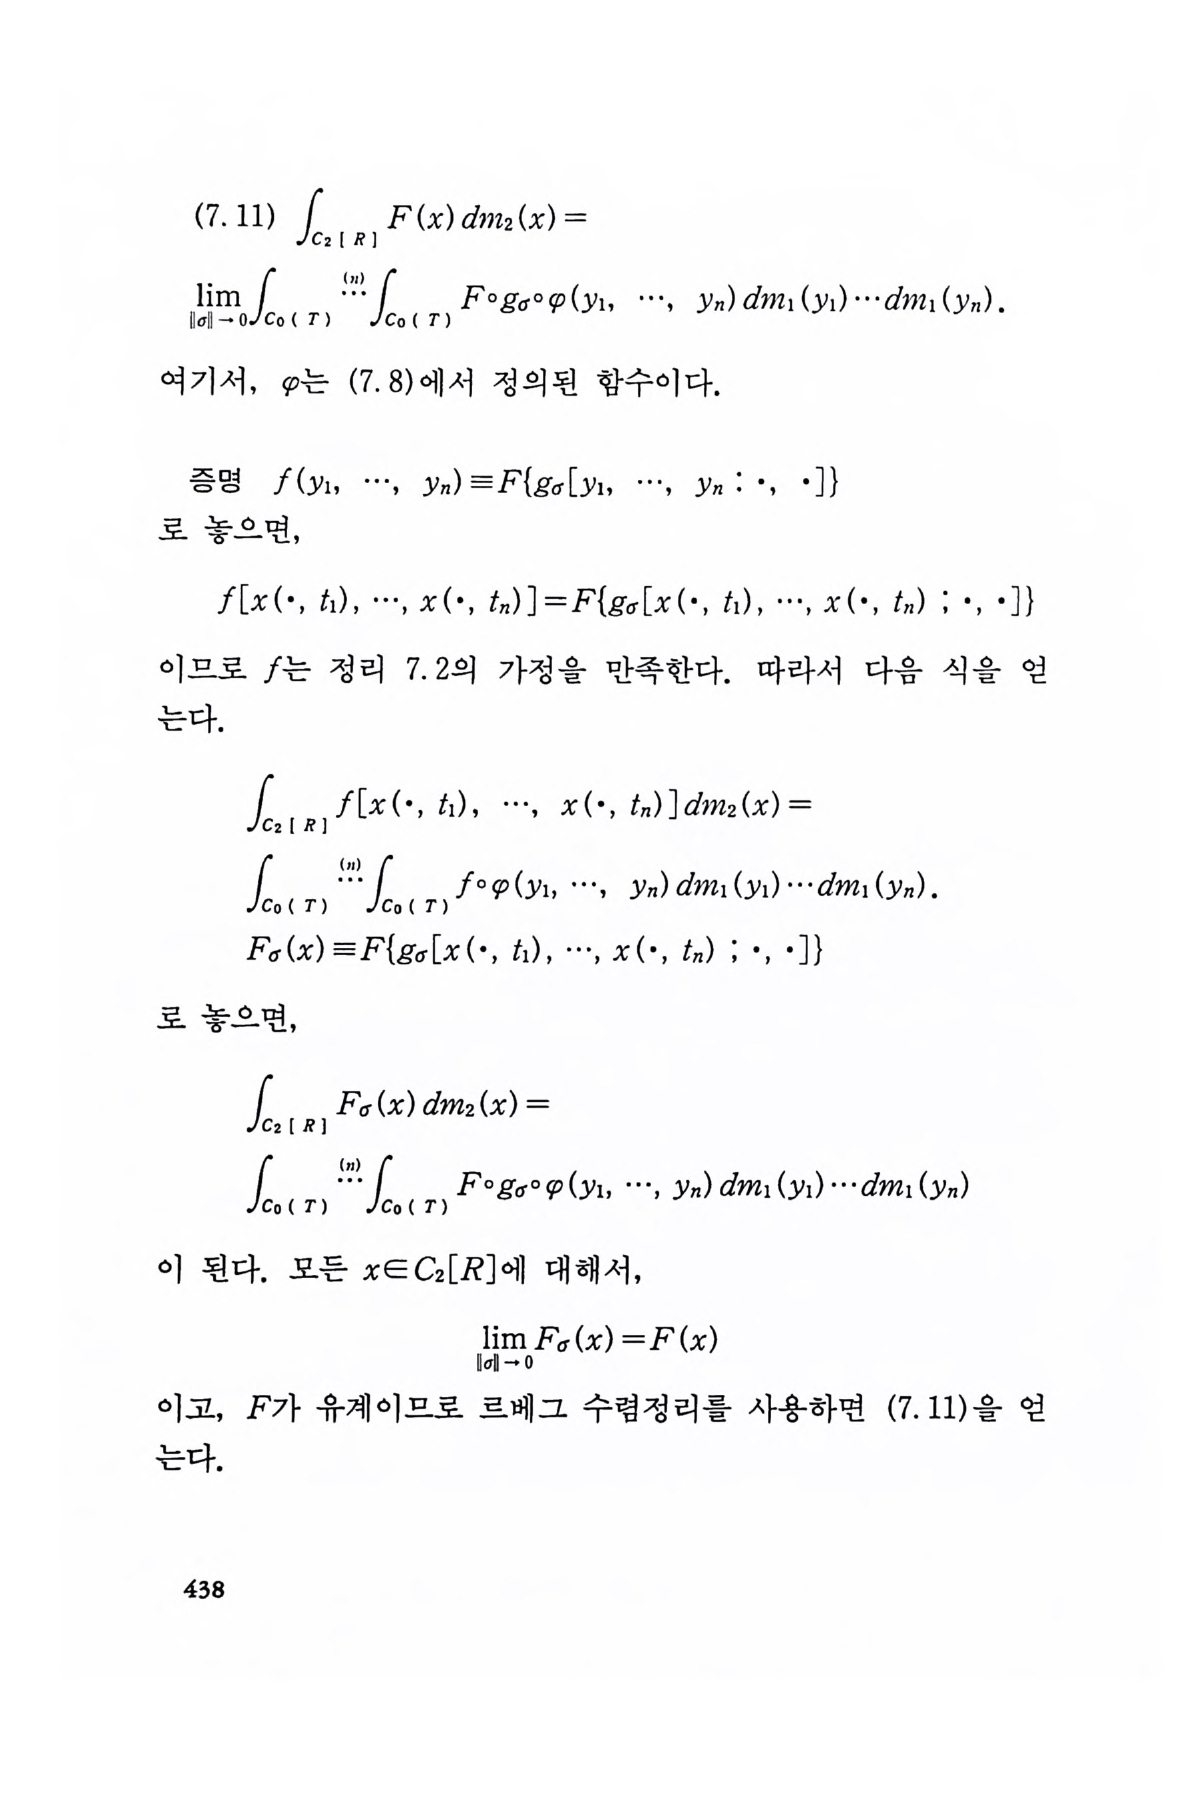 (7. 11) ∫_{C₂[R]} F(x) dm₂(x) =
lim_{‖σ‖→0} ∫_{C₀(T)} ⋯^{(n)} ∫_{C₀(T)} F∘g_σ∘φ(y₁, ⋯, yₙ) dm₁(y₁)⋯dm₁(yₙ).
여기서, φ는 (7. 8)에서 정의된 함수이다.
증명 f(y₁, ⋯, yₙ)≡F{g_σ[y₁, ⋯, yₙ : •, •]}
로 놓으면,
f[x(•, t₁), ⋯, x(•, tₙ)]=F{g_σ[x(•, t₁), ⋯, x(•, tₙ) ; •, •]}
이므로 f는 정리 7. 2의 가정을 만족한다. 따라서 다음 식을 얻
는다.
∫_{C₂[R]} f[x(•, t₁), ⋯, x(•, tₙ)] dm₂(x) =
∫_{C₀(T)} ⋯^{(n)} ∫_{C₀(T)} f∘φ(y₁, ⋯, yₙ) dm₁(y₁)⋯dm₁(yₙ).
F_σ(x)≡F{g_σ[x(•, t₁), ⋯, x(•, tₙ) ; •, •]}
로 놓으면,
∫_{C₂[R]} F_σ(x) dm₂(x) =
∫_{C₀(T)} ⋯^{(n)} ∫_{C₀(T)} F∘g_σ∘φ(y₁, ⋯, yₙ) dm₁(y₁)⋯dm₁(yₙ)
이 된다. 모든 x∈C₂[R]에 대해서,
lim_{‖σ‖→0} F_σ(x)=F(x)
이고, F가 유계이므로 르베그 수렴정리를 사용하면 (7. 11)을 얻
는다.
438